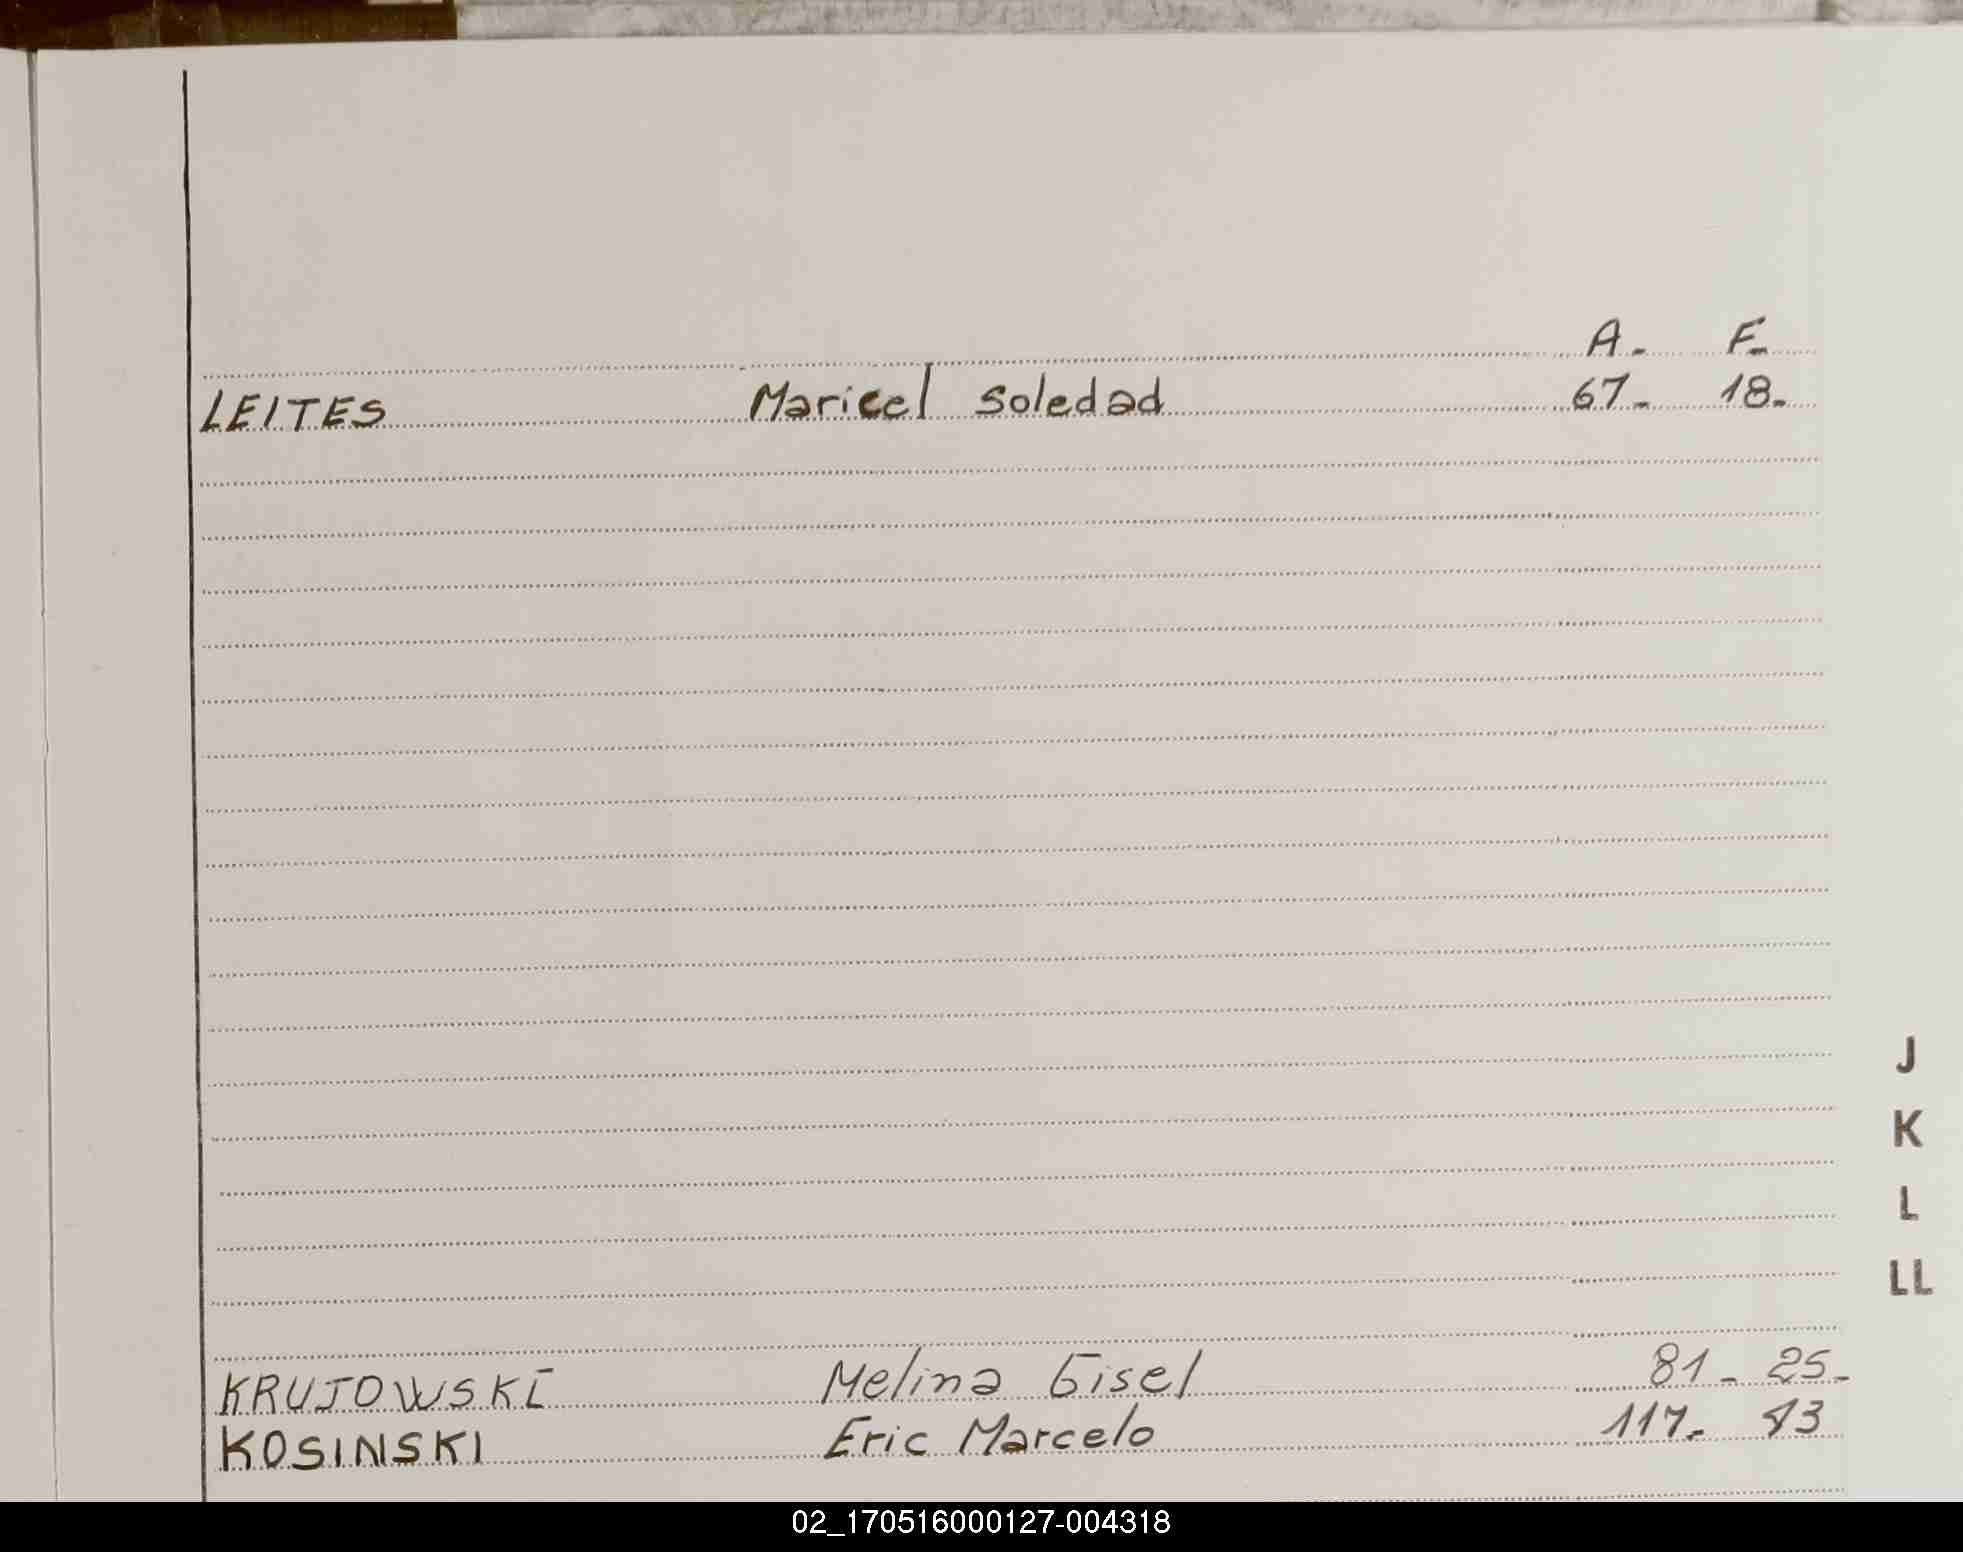 A. F.
LEITES Maricel Soledad 67. 18.
J
K
L
LL
KRUJOWSKI Melina Gisel 81. 25.
KOSINSKI Eric Marcelo 117. 43
02_170516000127-004318